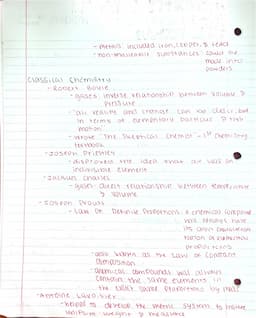 - metals included iron, copper, & lead
- non-malleable substances could be
made into
powders
Classical Chemistry
- Robert Boyle
- gases: inverse relationship between volume &
pressure
- "all reality and change can be described
in terms of elementary particles & their
motion"
- wrote "The Skeptical Chemist" - 1st chemistry
textbook
- Joseph Priestley
- disproved the idea that air was an
indivisible element
- Jacques Charles
- gases: direct relationship between temperature
& volume
- Joseph Proust
- Law of Definite Proportions: a chemical compound
its own
ratio of elemental
proportions
- also known as the Law of Constant
Composition
- chemical compounds will always
contain the same elements in
the exact same proportions by mass
- Antoine Lavoisier
- helped to develop the metric system to
uniform weight & measures